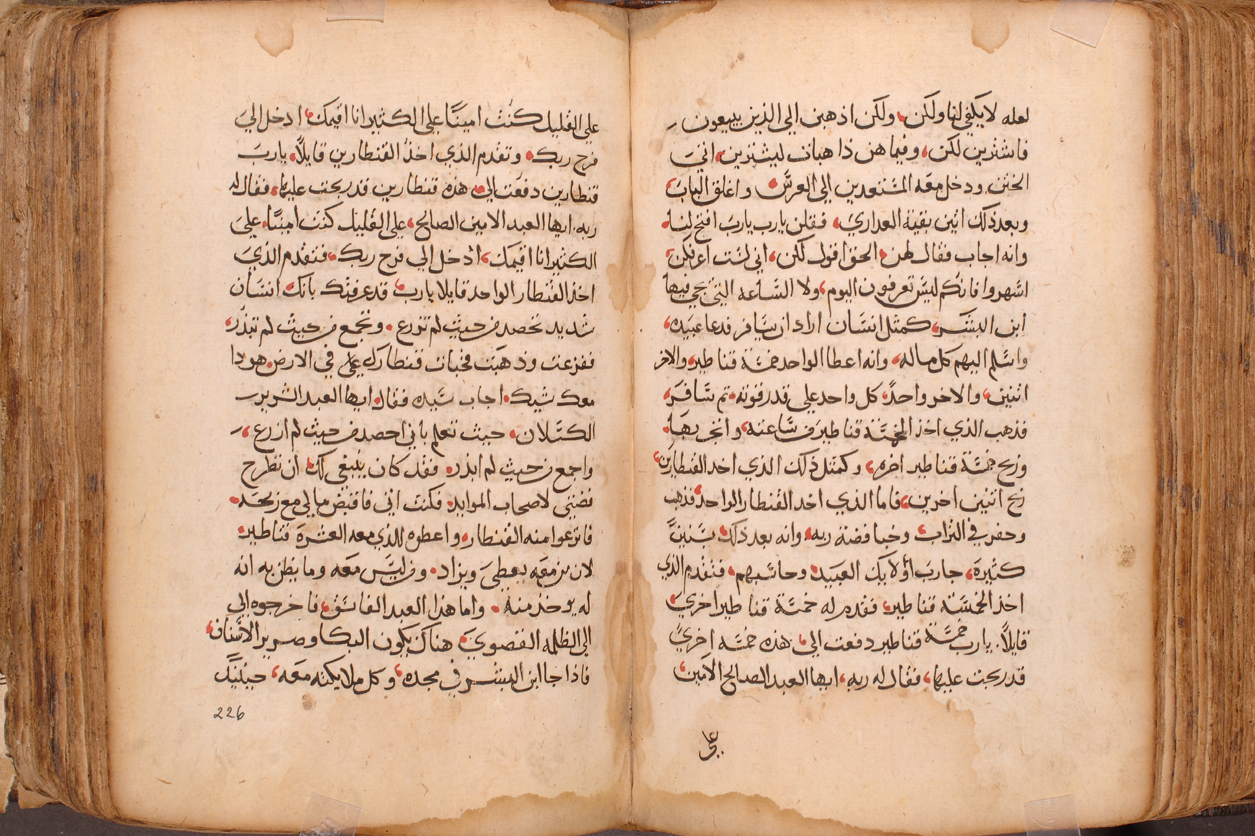 لعله لا يكفي لنا ولكن، ولكن اذهبن الي الذين يبيعون
فاشترين لكن، وفيما هن ذاهبات ليشترين، اتي
الختن ودخل معه المستعدين الي العرس، واغلق الباب،
وبعد ذلك اتين بقية العداري، فقلن يارب يارب افتح لنا،
وانه اجاب فقال لهن، الحق اقول لكن، اني لست اعرفكن،
اسهروا فانكم ليس تعرفون اليوم، ولا الساعه التي يجي فيها
ابن البشر، كمثل انسان اراد ان يسافر فدعا عبيده،
واسلم اليهم كل ماله، وانه اعطا الواحد خمسة قناطير، والاخر
اثنين، والاخر واحدًا، كل واحد علي قدر قوته، ثم سافر،
فذهب الذي اخذ الخمسة قناطير من ساعته، واتجر بها،
وربح خمسة قناطير اخره، وكمثل ذلك الذي اخد القنطارين،
ربح اتنين اخرين، فاما الذي اخد القنطار الواحد، فذهب
وحفر في التراب، وخبا فضة ربه، وانه بعد ذلك، بسنينً
كثيرة، جا رب أولايك العبيد، وحاسبهم، فتقدم الذي
اخذ الخمسة قناطير، فقدم له خمسة قناطير اخري،
قايلاً، يارب خمسة قناطير دفعت الي، هذه خمسه اخري
قد ربحت عليها، فقال له ربه، ايها العبد الصالح الامين،
علي
علي القليل كنت امينًا علي الكثير انا اقيمك، ادخل الي
فرح ربك، وتقدم الذي اخذ القنطارين قايلاً، يارب
قنطارين دفعت الي، هذه قنطارين قد ربحت عليها، فقال له
ربه، ايها العبد الامين الصالح، علي القليل كنت امينًا، علي
الكثير انا اقيمك، ادخل الي فرح ربك، فتقدم الذي
اخذ القنطار الواحد قايلا يارب، قد عرفتك بانك انسان
شديد تحصد من حيث لم تزرع، وتجمع من حيث لم تبدر،
ففزعت وذهبت فخبات قنطارك في الارض، هودا
معك شيك، اجاب سيده فقال، ايها العبد الشرير
الكسلان، حيث تعلم باني احصد من حيث لم ازرع،
واجمع من حيث لم ابدر، فقد كان ينبغي لك، ان تطرح
فضتي لاصحاب الموايد، فكنت اتي فاقبض مالي مع ربحه،
فانزعوا منه القنطار، واعطوه للذي معه العشرة قناطير،
لان من معه يعطي ويزاد، ومن ليس معه وما يظن به انه
له يوخذ منه، واما هذا العبد الفاسق، فاخرجوه الي
الي الظلمه القصوي، هناك يكون البكا وصرير الاسنان،
فاذا جا ابن البشر في مجده، وكل ملايكته معه، حينيدٍ
226